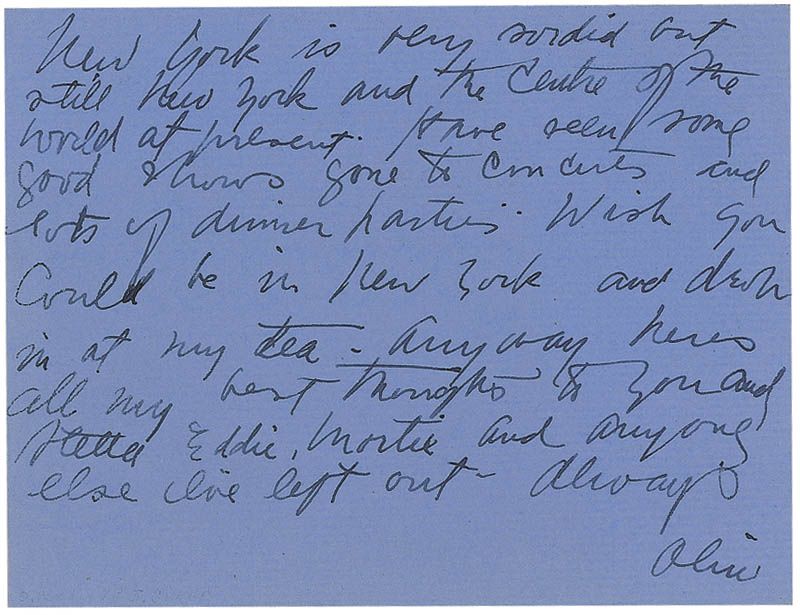 New York is very sordid but
still New York and the Centre of the
world at present. Have seen some
good shows gone to concerts and
lots of dinner parties. Wish you
Could be in New York and drop
in at my tea - Anyway heres
all my best thoughts to you and
Stella Eddie, Mortie and anyone
else I've left out - Always
Olive